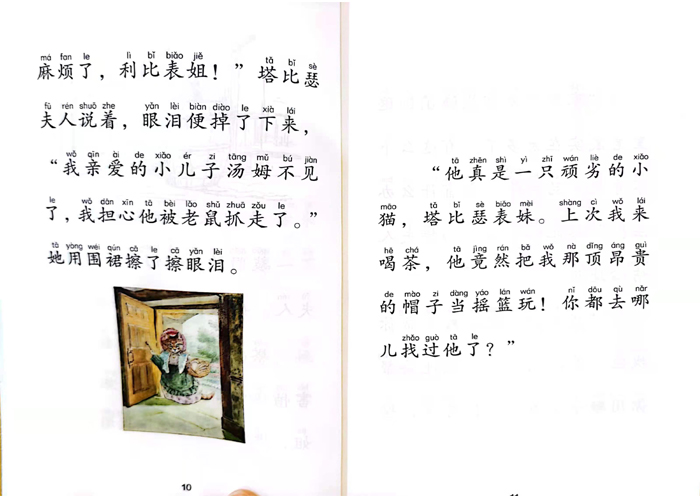 má fan le lì bǐ biǎo jiě tǎ bǐ sè
麻烦了，利比表姐！”塔比瑟
fū rén shuō zhe yǎn lèi biàn diào le xià lái
夫人说着，眼泪便掉了下来，
wǒ qīn ài de xiǎo ér zi tāng mǔ bú jiàn
“我亲爱的小儿子汤姆不见
le wǒ dān xīn tā bèi lǎo shǔ zhuā zǒu le
了，我担心他被老鼠抓走了。”
tā yòng wéi qún cā le cā yǎn lèi
她用围裙擦了擦眼泪。
10
tā zhēn shì yì zhī wán liè de xiǎo
“他真是一只顽劣的小
māo tǎ bǐ sè biǎo mèi shàng cì wǒ lái
猫，塔比瑟表妹。上次我来
hē chá tā jìng rán bǎ wǒ nà dǐng áng guì
喝茶，他竟然把我那顶昂贵
de mào zi dàng yáo lán wán nǐ dōu qù nǎ
的帽子当摇篮玩！你都去哪
r zhǎo guò tā le
儿找过他了？”